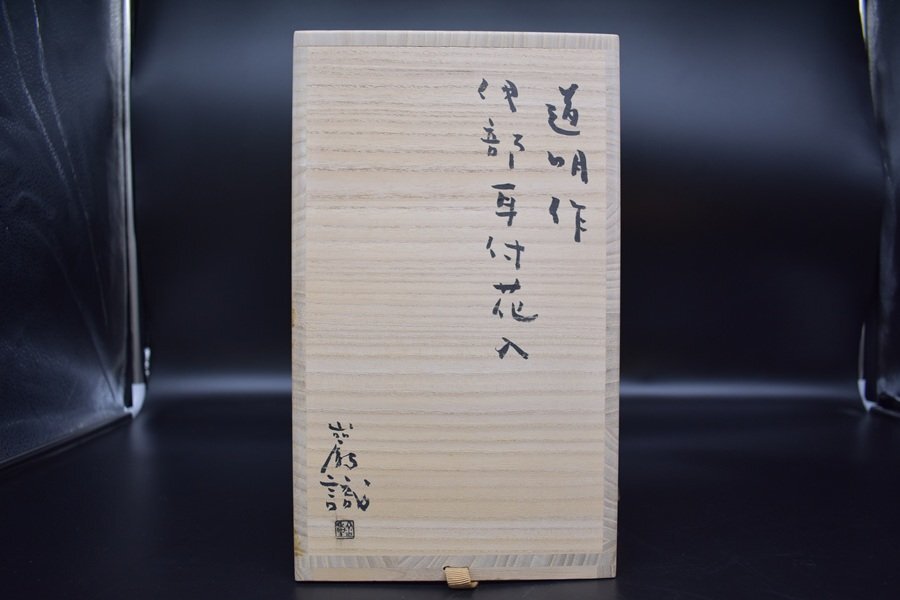 道明作
伊部耳付花入
巌識